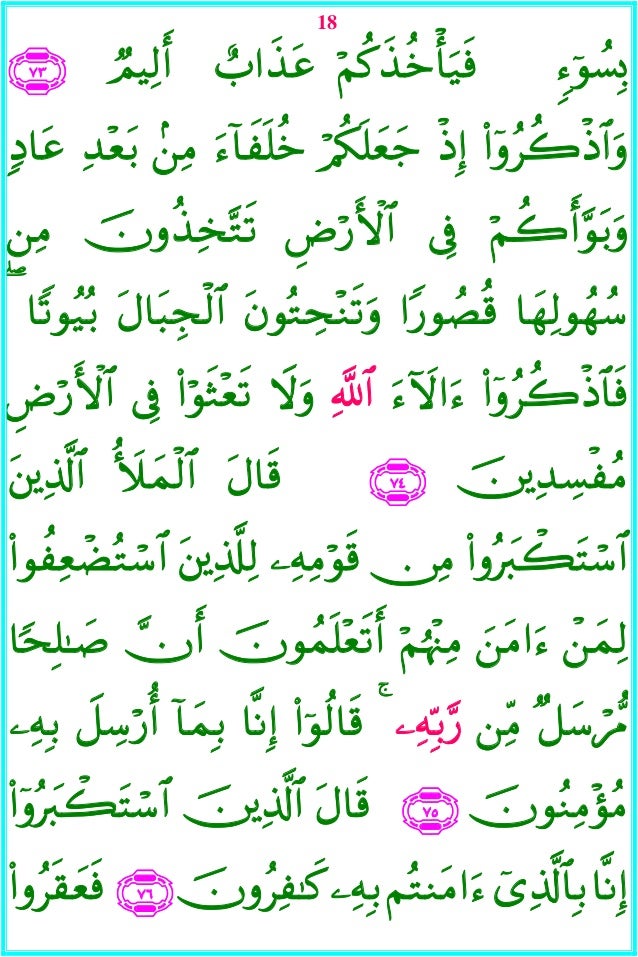 18
بِسُوٓءٖ فَيَأۡخُذَكُمۡ عَذَابٌ أَلِيمٞ ٧٣
وَٱذۡكُرُوٓاْ إِذۡ جَعَلَكُمۡ خُلَفَآءَ مِنۢ بَعۡدِ عَادٖ
وَبَوَّأَكُمۡ فِي ٱلۡأَرۡضِ تَتَّخِذُونَ مِن
سُهُولِهَا قُصُورٗا وَتَنۡحِتُونَ ٱلۡجِبَالَ بُيُوتٗاۖ
فَٱذۡكُرُوٓاْ ءَالَآءَ ٱللَّهِ وَلَا تَعۡثَوۡاْ فِي ٱلۡأَرۡضِ
مُفۡسِدِينَ ٧٤ قَالَ ٱلۡمَلَأُ ٱلَّذِينَ
ٱسۡتَكۡبَرُواْ مِن قَوۡمِهِۦ لِلَّذِينَ ٱسۡتُضۡعِفُواْ
لِمَنۡ ءَامَنَ مِنۡهُمۡ أَتَعۡلَمُونَ أَنَّ صَٰلِحٗا
مُّرۡسَلٞ مِّن رَّبِّهِۦۚ قَالُوٓاْ إِنَّا بِمَآ أُرۡسِلَ بِهِۦ
مُؤۡمِنُونَ ٧٥ قَالَ ٱلَّذِينَ ٱسۡتَكۡبَرُوٓاْ
إِنَّا بِٱلَّذِيٓ ءَامَنتُم بِهِۦ كَٰفِرُونَ ٧٦ فَعَقَرُواْ